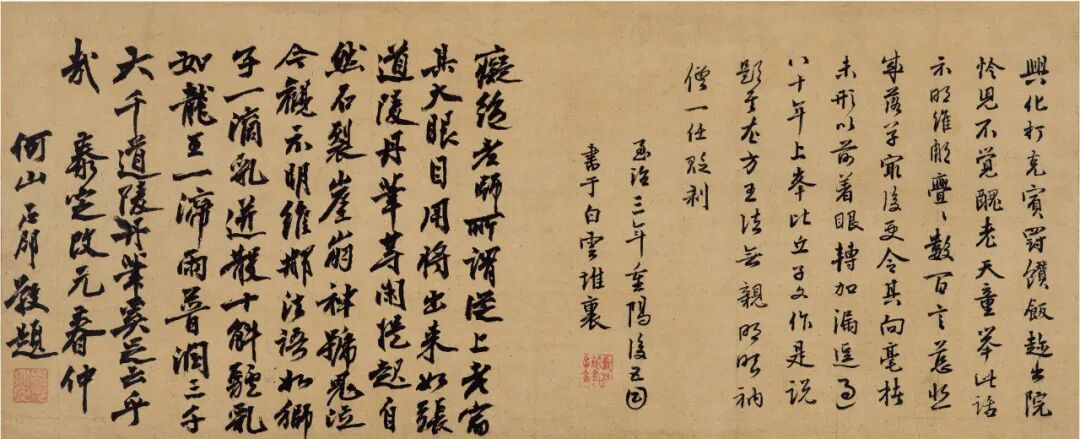 興化打克賓罰饡飯趂出院
怜児不覺醜老天童舉此話
示明維那亹〻數百言
落草最後更令其向毫楮
未形以前着眼轉加漏逗過
八十年上峯比丘子文作是説
題于左方王法無親明眼衲
僧一任貶剥
至治三年重陽後五日
書于白雲堆裏
癡絶老師所謂從上老宿
具大眼目用將出来如張
道陵丹筆等閑提起自
然石裂崖崩神號鬼泣
今觀示明維那法語如獅
子一滴乳迸散十斛驢乳
如龍王一滴雨普潤三千
大千道陵丹筆奚足云乎
哉 泰定改元春仲
何山正印敬題